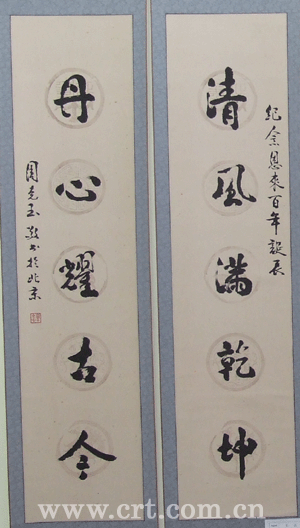 纪念恩来百年诞辰
清风满乾坤
丹心耀古今
周克玉敬书于北京
www.crt.com.cn